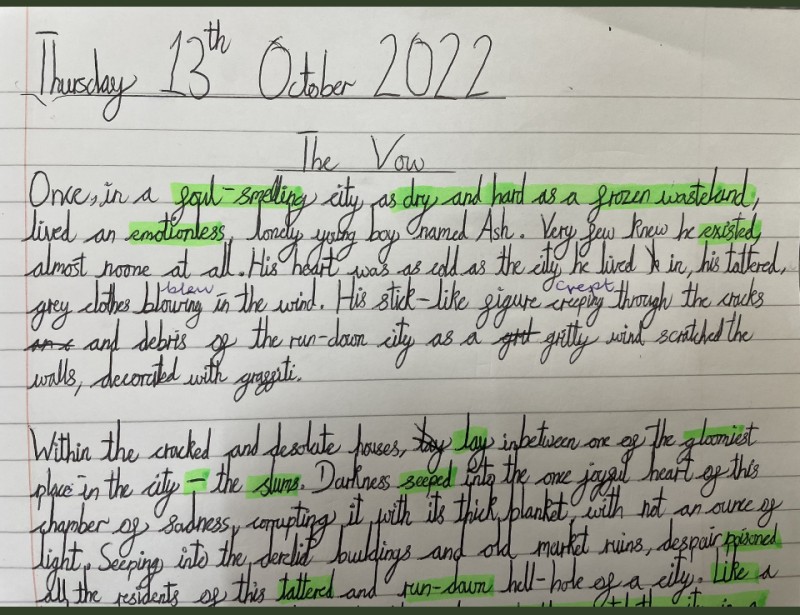 Thursday 13th October 2022
The Vow
Once, in a foul-smelling city as dry and hard as a frozen wasteland,
lived an emotionless, lonely young boy named Ash. Very few knew he existed,
almost noone at all. His heart was as cold as the city he lived in, his tattered,
blew crept
grey clothes blowing in the wind. His stick-like figure creeping through the cracks
and debris of the run-down city as a gritty wind scratched the
walls, decorated with graffiti.
Within the cracked and desolate houses, lay inbetween one of the gloomiest
place in the city – the slums. Darkness seeped into the one joyful heart of this
chamber of sadness, corrupting it with its thick blanket, with not an ounce of
light. Seeping into the derelict buildings and old market ruins, despair poisoned
all the residents of this tattered and run-down hell-hole of a city. Like a